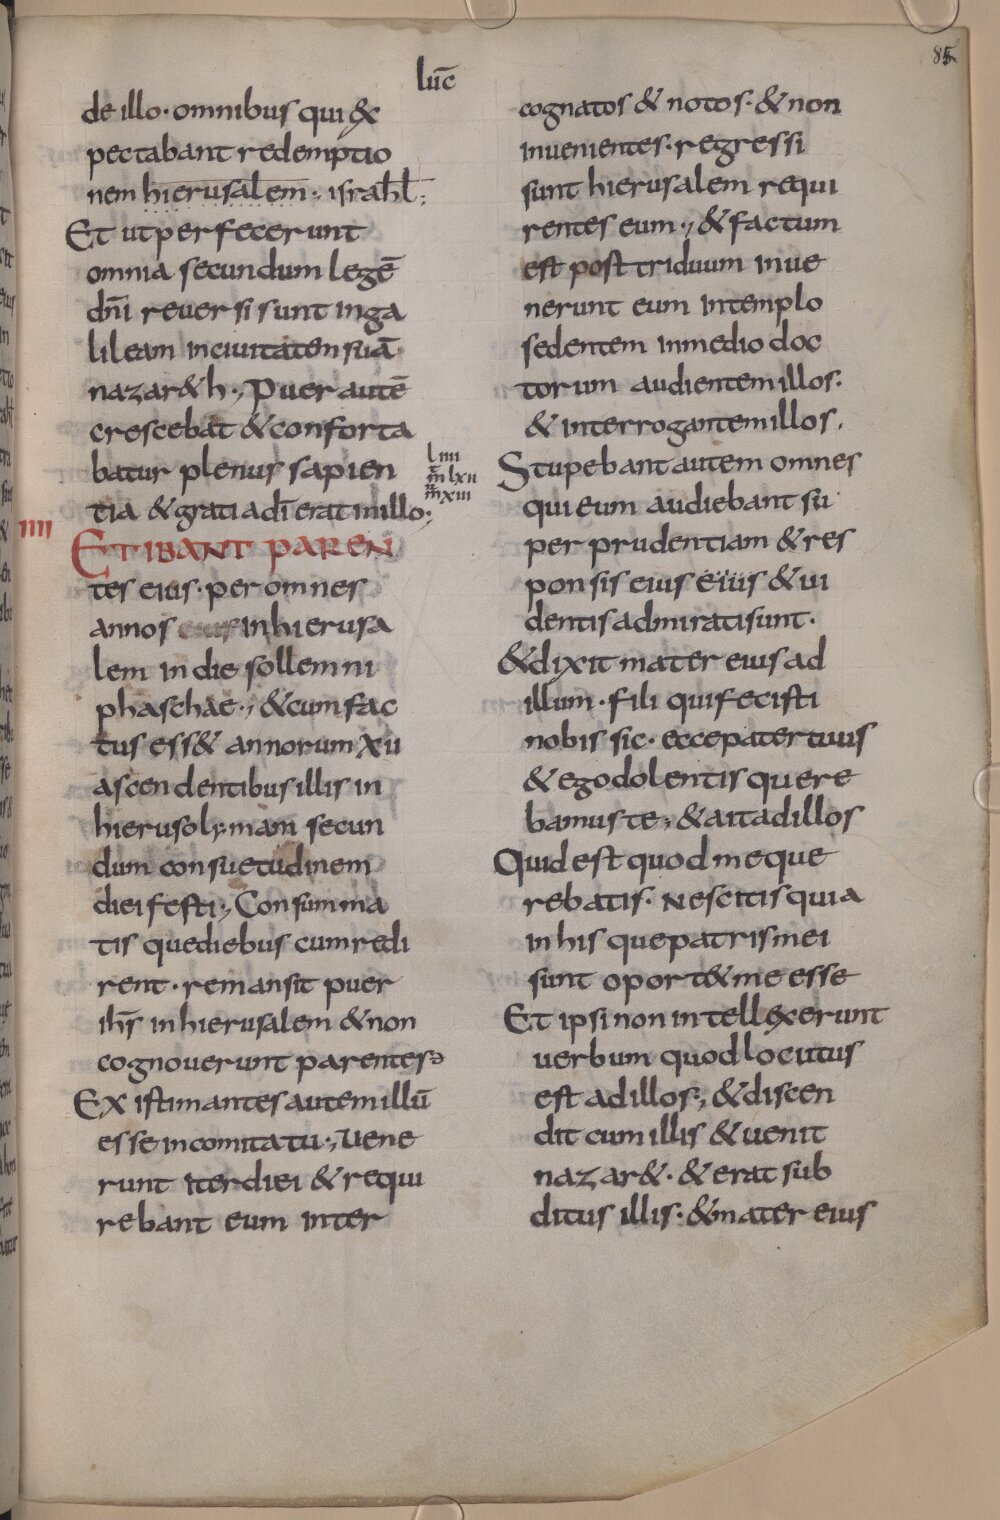 85
lūc
de illo · omnibus qui &x
pectabant redemptio
nem hierusalem · israhl̄ ;
Et ut perfecerunt
omnia secundum legē
dn̄i reuersi sunt in ga
lileam in ciuitatem suā
nazar&h ·, Puer autē
crescebat & conforta
batur plenus sapien
tia & grati a dī erat in illo ;
liiii
m̄ lxii
m̄ xiii
iiii
ET IBANT PAREN
tes eius · per omnes
annos in hierusa
lem in die sollemni
phaschae ·, & cum fac
tus ess& annorum xii
ascendentibus illis in
hierusolymam secun
dum consuetudinem
diei festi ·, Consumma
tis quediebus cum redi
rent · remansit puer
ihs̄ in hierusalem & non
cognouerunt parentes
Existimantes autem illū
esse in comitatu ·, uene
runt iter diei & requi
rebant eum inter
cognatos & notos · & non
inuenientes · regressi
sunt hierusalem requi
rentes eum ·, & factum
est post triduum inue
nerunt eum in templo
sedentem in medio doc
torum audientem illos :
& interrogantem illos .
Stupebant autem omnes
qui eum audiebant su
per prudentiam & res
ponsis eius eius & ui
dentis admirati sunt ·
& dixit mater eius ad
illum · fili qui fecisti
nobis sic · ecce pater tuus
& ego dolentis quere
bamus te , & ait ad illos
Quid est quod me que
rebatis · Nescitis quia
in his que patris mei
sunt oport& me esse
Et ipsi non intellexerunt
uerbum quod locutus
est ad illos ·, & discen
dit cum illis & uenit
nazar& · & erat sub
ditus illis · & mater eius